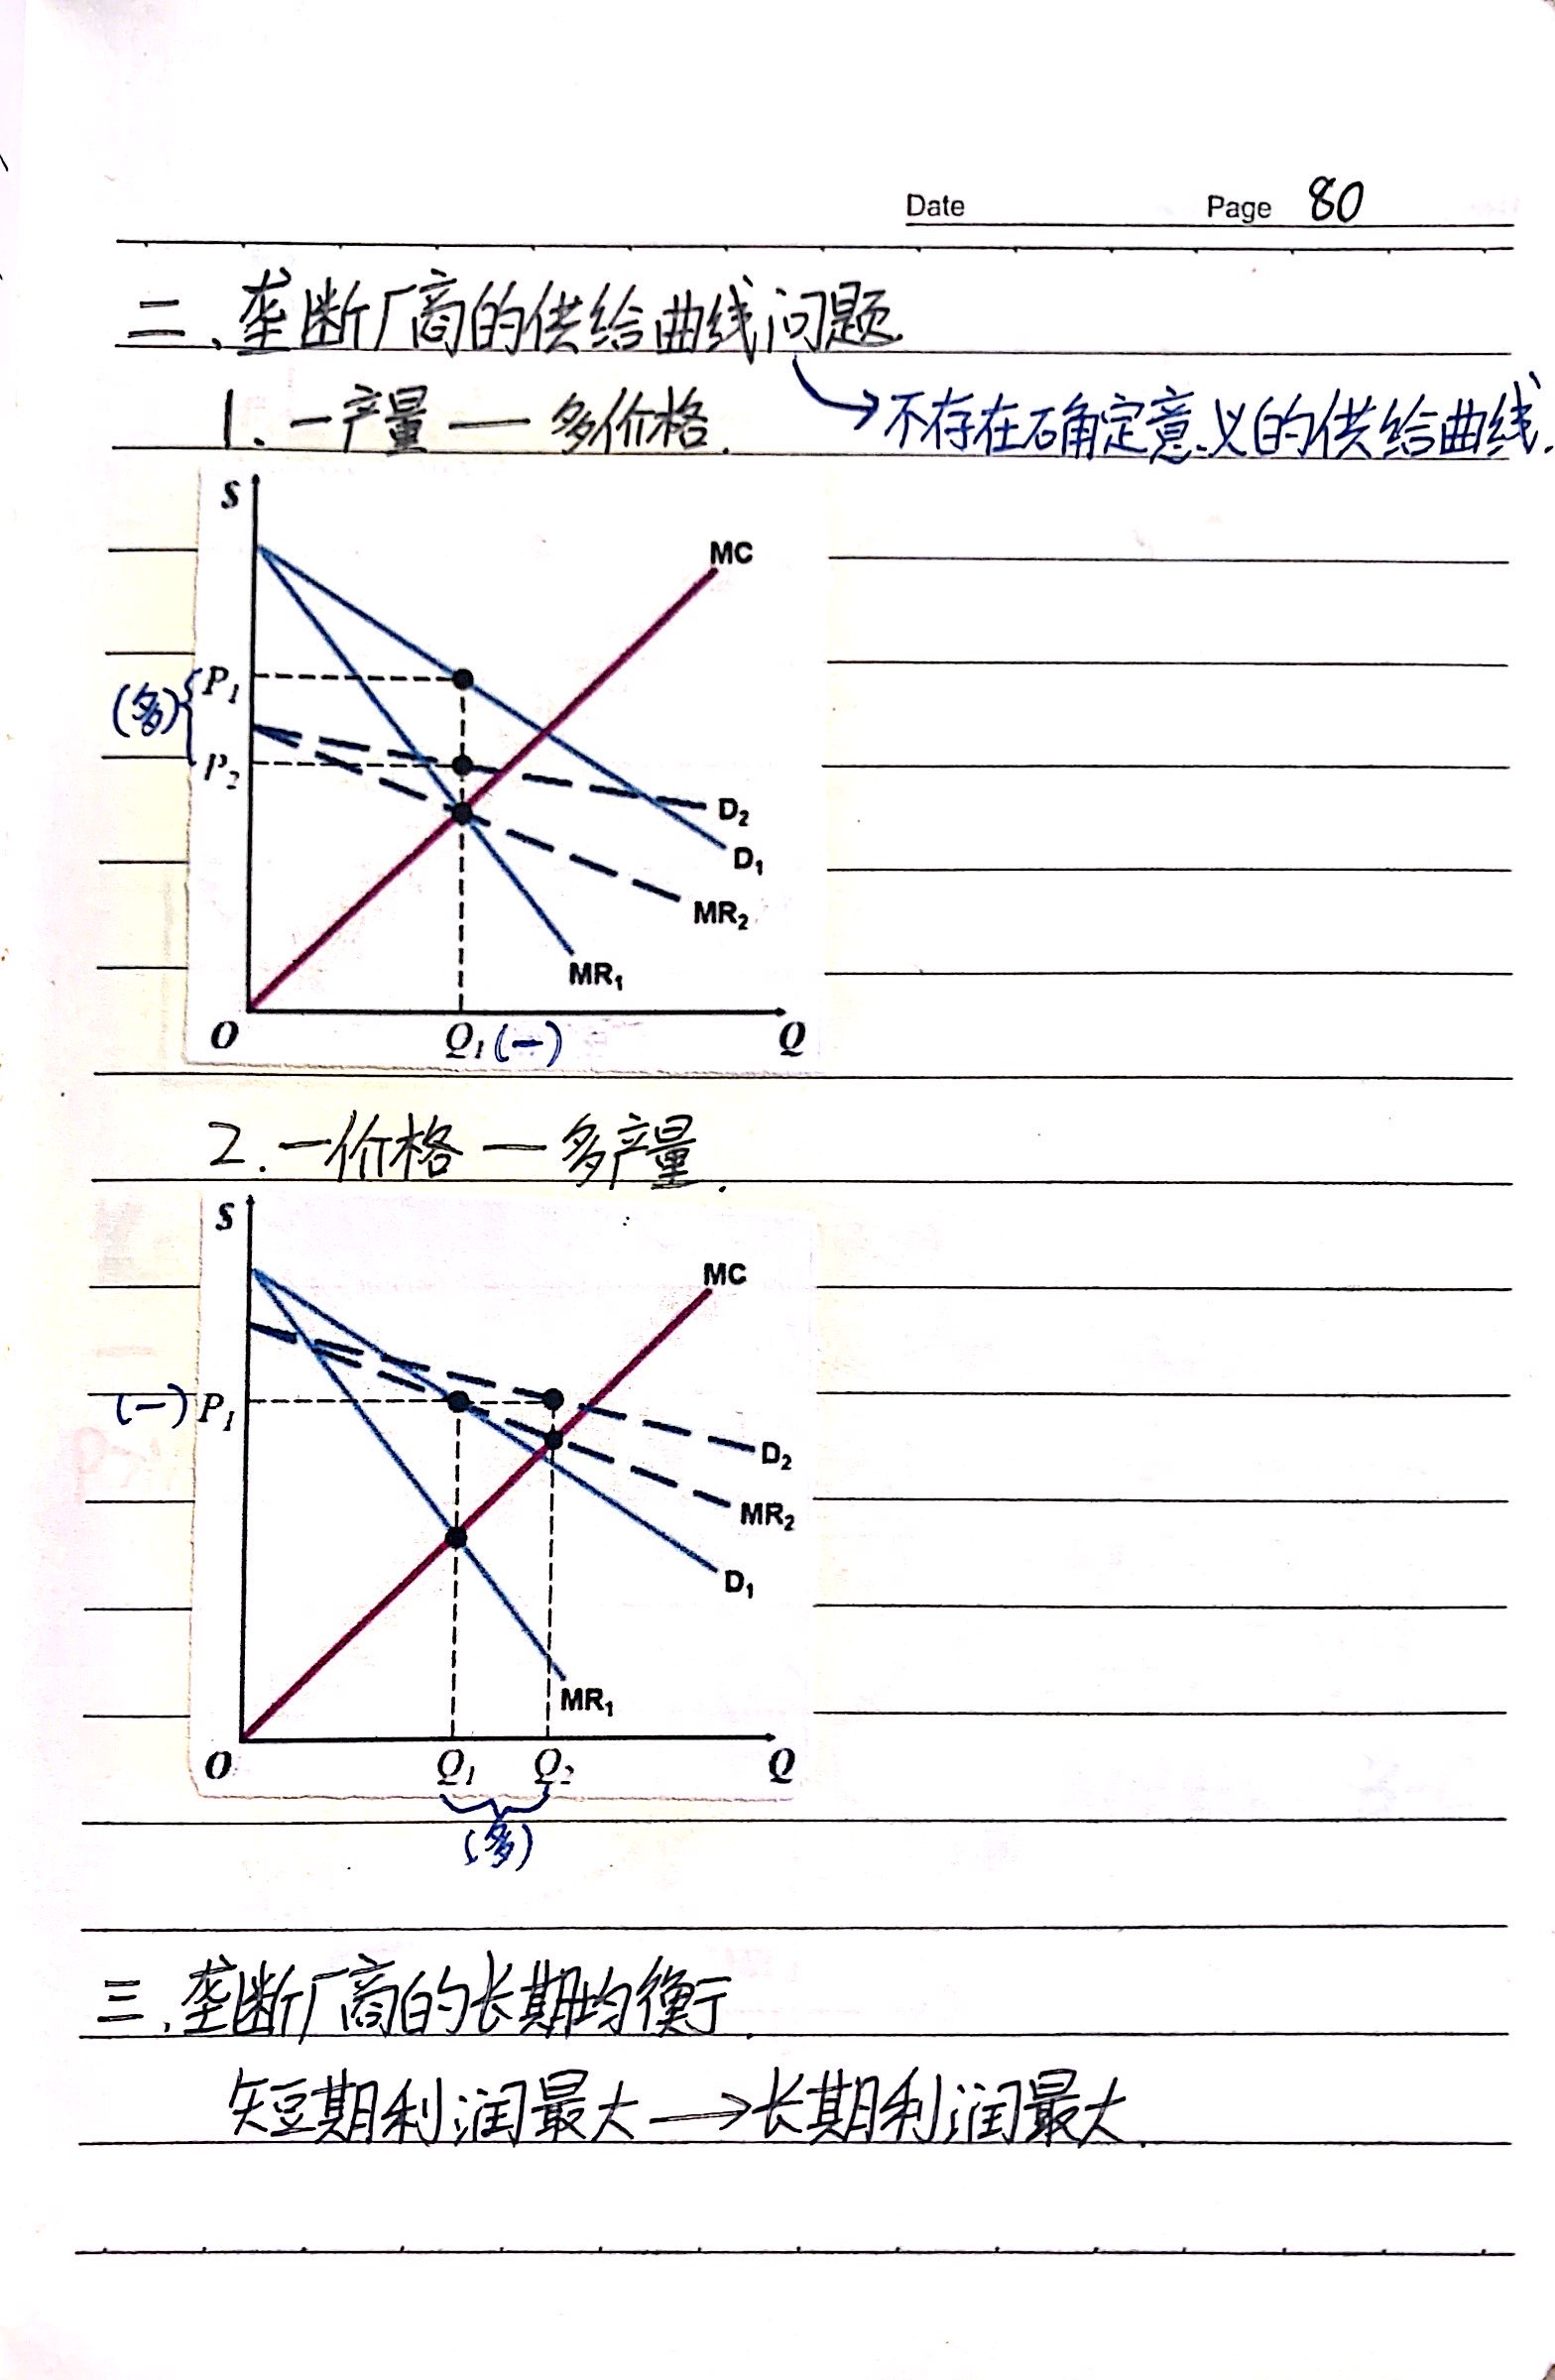 Date Page 80
二、垄断厂商的供给曲线问题.
1. 一产量 — 多价格.
→不存在确定意义的供给曲线.
S
MC
(多){P₁
P₂
D₂
D₁
MR₂
MR₁
O Q₁(一) Q
2. 一价格 — 多产量.
S
MC
(一)P₁
D₂
MR₂
D₁
MR₁
O Q₁ Q₂ Q
(多)
三.垄断厂商的长期均衡.
短期利润最大→长期利润最大.